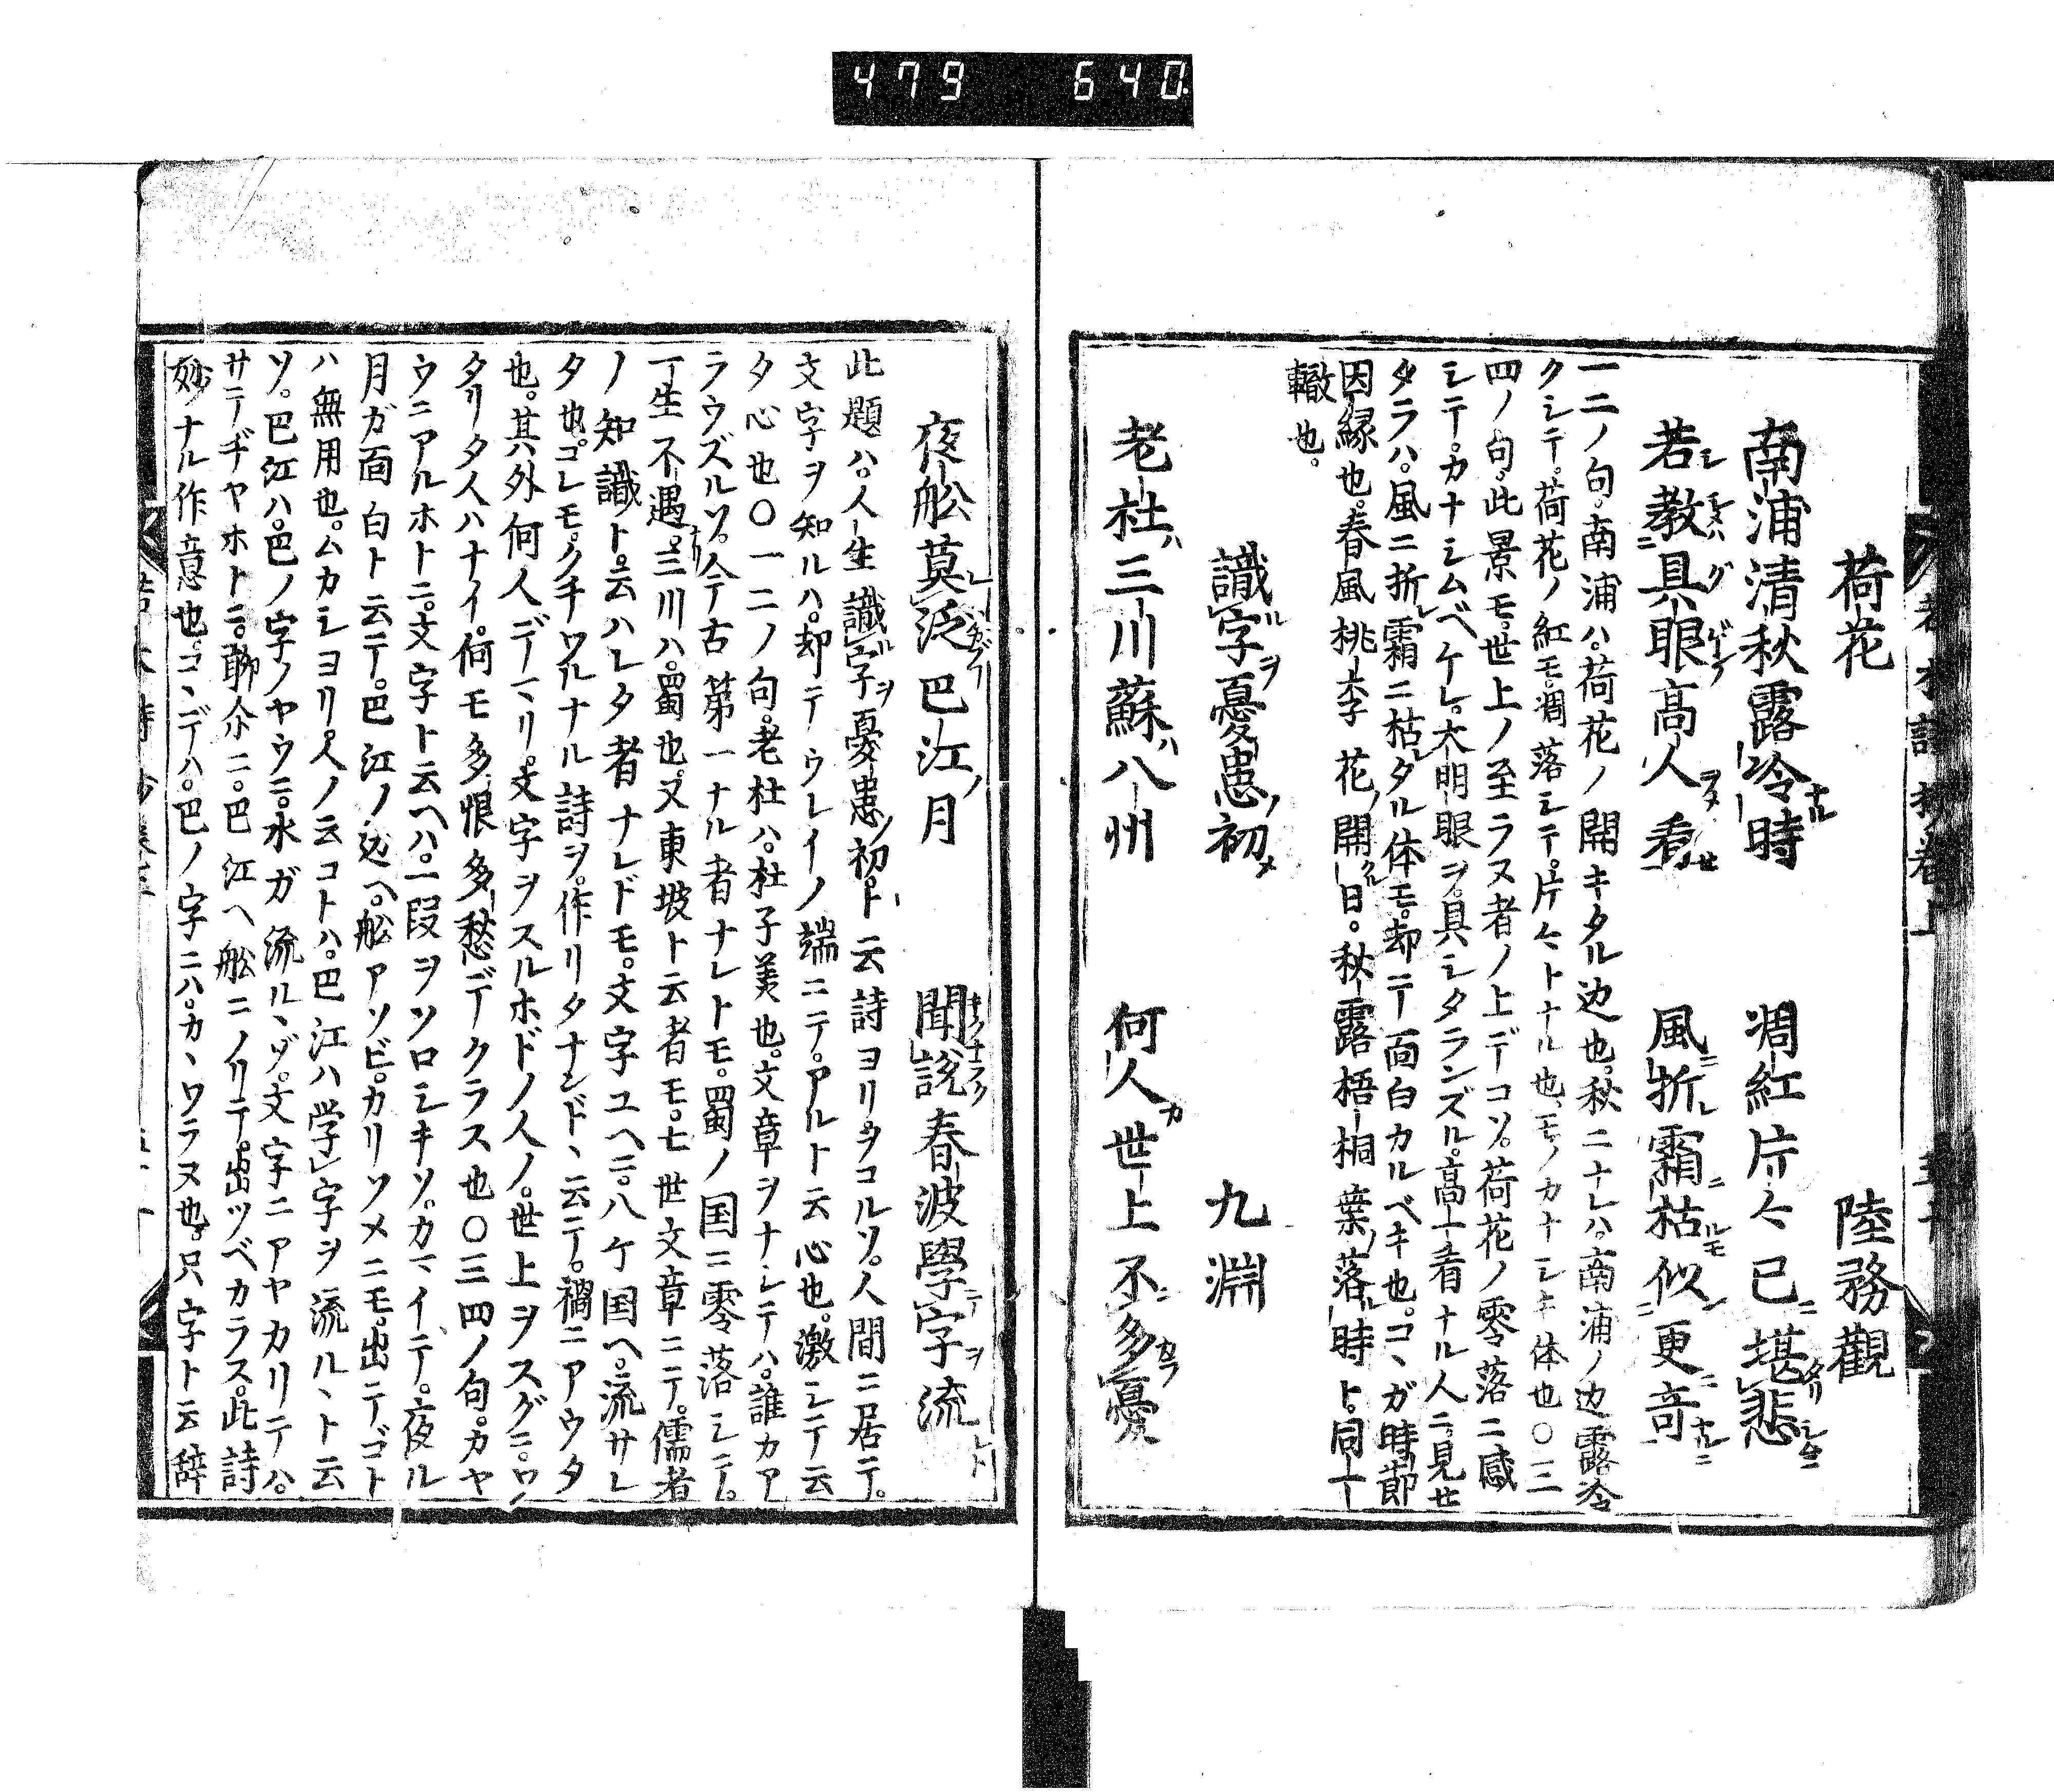 479 640
荷花 陸務觀
南浦清秋露冷時 凋紅片々已堪悲
若教具眼高人看 風折霜枯似更竒
一二ノ句。南浦ハ。荷花ノ開キタル辺也。秋ニナレハ。南浦ノ辺露冷
クシテ。荷花ノ紅モ。凋落シテ。片々トナル也。モノカナシキ体也〇三
四ノ句。此景モ。世上ノ至ラヌ者ノ上デコソ。荷花ノ零落ニ感
シテ。カナシムベケレ。大明眼ヲ。具シタランズル。高上看ナル人ニ。見セ
タラハ。風ニ折レ霜ニ枯レタル体モ。却テ面白カルベキ也。コヽガ時節
因縁也。春風桃李花ノ開クル日。秋露梧桐葉ノ落ル時ト。同一
轍也。
識字憂患初 九淵
老杜三川蘇八州 何人世上不多憂
夜舩莫泛巴江月 聞説春波學字流
此題ハ。人生識字憂患ノ初ト云詩ヨリ。ヲコルソ。人間ニ居テ。
文字ヲ知ルハ。却テウレイノ端ニテ。アルト云心也。激シテ云
タ心也〇一二ノ句。老杜ハ。杜子美也。文章ヲナシテハ。誰カア
ラウズルソ。今古第一ナル者ナレトモ。蜀ノ国ニ零落シテ。
一生不遇。三川ハ。蜀也。又東坡ト云者モ。七世文章ニテ。儒者
ノ知識ト。云ハレタ者ナレドモ。文字ユヘニ。八ケ国ヘ。流サレ
タ也。コレモ。クチワルナル詩ヲ。作リタナンドヽ云テ。禍ニアウタ
也。其外何人デマリ。文字ヲスルホドノ人ノ。世上ヲスグニ。ワ
タリタ人ハナイ。何モ多恨多愁デクラス也〇三四ノ句。カヤ
ウニアルホトニ。文字ト云ヘハ。一段ヲソロシキソ。カマイテ。夜ル
月ガ面白ト云テ。巴江ノ辺ヘ。舩アソビ。カリソメニモ。出テゴト
ハ無用也。ムカシヨリ。人ノ云コトハ。巴江ハ学字ヲ流ルヽト云
ソ。巴江ハ。巴ノ字ノヤウニ。水ガ流ルヽゾ。文字ニアヤカリテハ。
サテヂヤホトニ。聊介ニ。巴江ヘ舩ニノリテ。出ツベカラス。此詩
妙ナル作意也。コヽデハ。巴ノ字ニハ。カヽワラヌ也。只字ト云辞